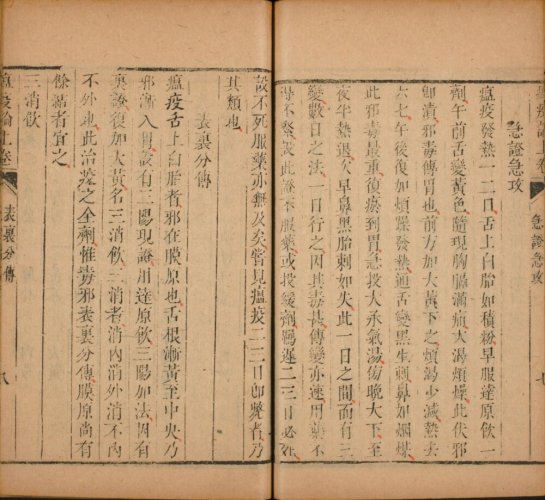 急證急攻
急證急攻
瘟疫發熱一二日舌上白胎如積粉早服達原飲一
劑午前舌變黃色隨現胸膈滿痛大渴煩燥此伏邪
卽潰邪毒傳胃也前方加大黃下之煩渴少減熱去
六七午後復加煩燥發熱通舌變黑生刺鼻如烟煤
此邪毒最重復瘀到胃急投大承氣湯傍晚大下至
夜半熱退次早鼻黑胎刺如失此一日之間而有三
變數日之法一日行之因其毒甚傳變亦速用藥不
得不緊設此證不服藥或投緩劑羈遲二三日必死
設不死服藥亦無及矣嘗見瘟疫一二日卽斃者乃
其類也
表裏分傳
瘟疫舌上白胎者邪在膜原也舌根漸黃至中央乃
邪漸入胃設有三陽現證用達原飲三陽加法因有
裏證復加大黃名三消飲三消者消內消外消不內
不外也此治疫之全劑惟毒邪表裏分傳膜原尚有
餘結者宜之
三消飲
瘟疫論上卷 表裏分傳 八